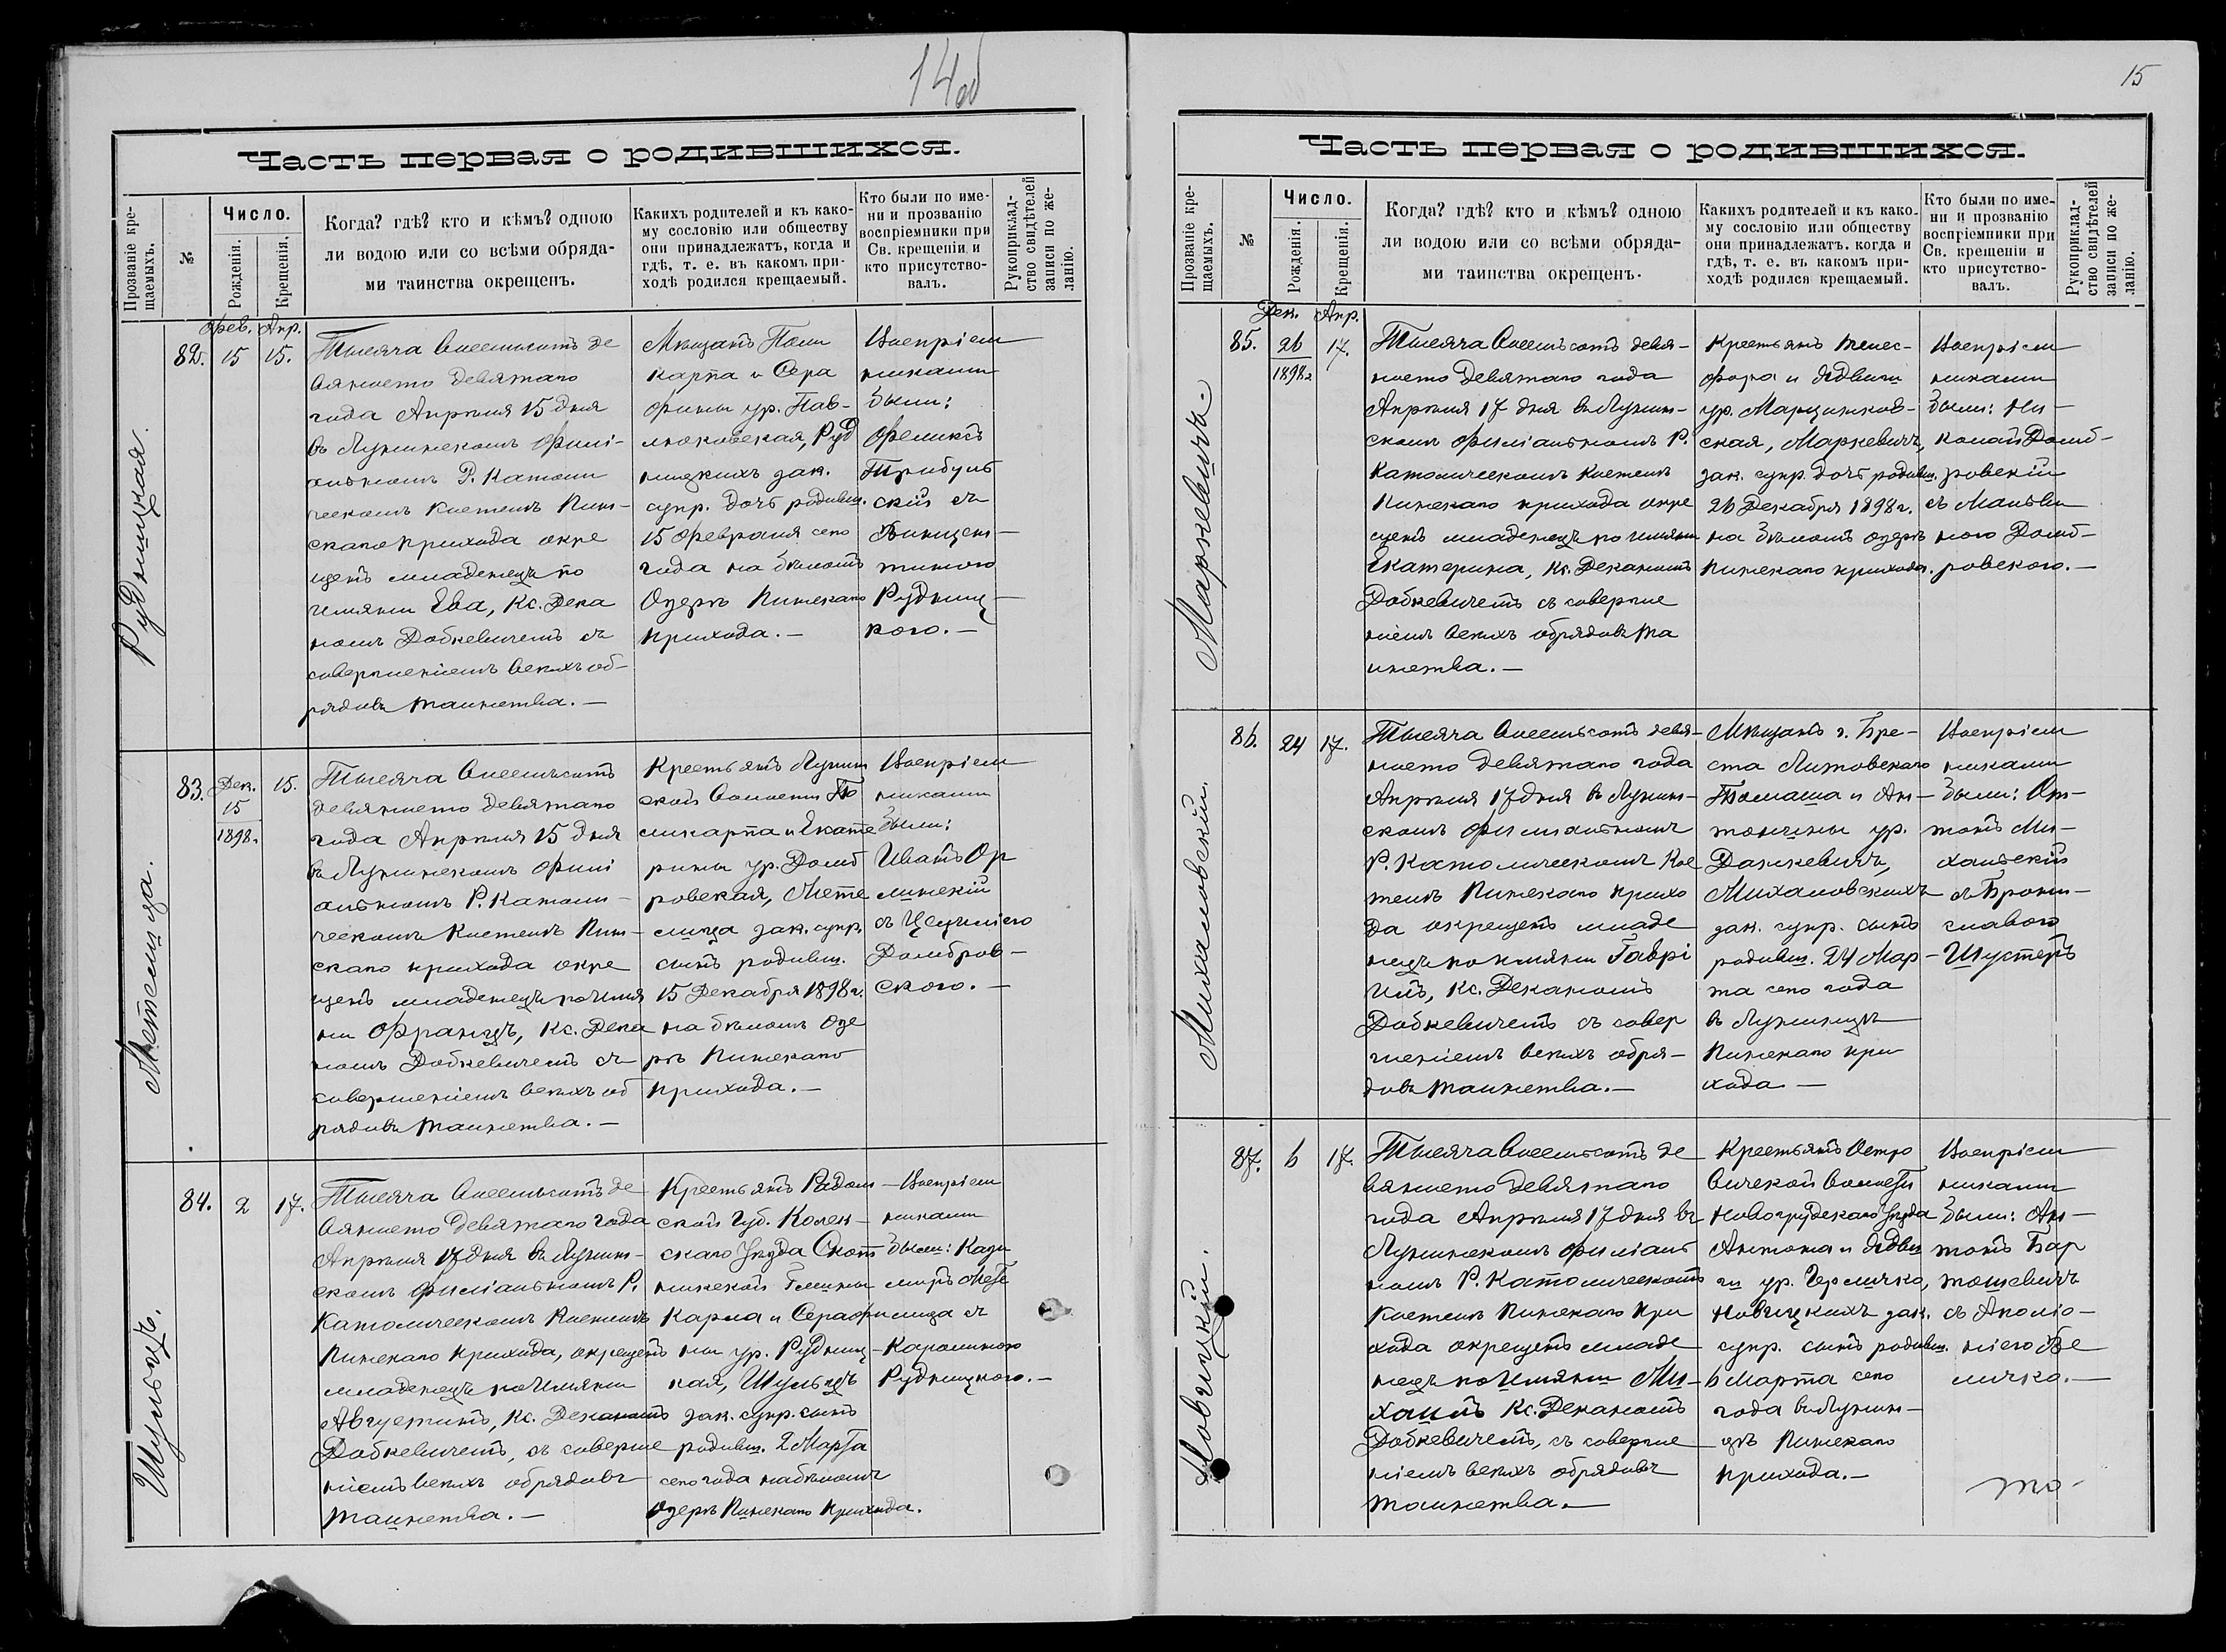 14об
Часть первая о родившихся.
Прозваніе кре-
щаемыхъ.
№
Число.
Рожденія.
Крещенія.
Когда? гдѣ? кто и кѣмъ? одною
ли водою или со всѣми обряда-
ми таинства окрещенъ.
Какихъ родителей и къ како-
му сословію или обществу
они принадлежатъ, когда и
гдѣ, т. е. въ какомъ при-
ходѣ родился крещаемый.
Кто были по име-
ни и прозванію
воспріемники при
Св. крещеніи и
кто присутство-
валъ.
Рукоприклад-
ство свидѣтелей
записи по же-
ланію.
Рудницкая.
82.
Фев.
15
Апр.
15.
Тысяча восемьсотъ де
вяносто девятаго
года Апрѣля 15 дня
въ Лунинскомъ Филі-
альномъ Р. Католи
ческомъ костелѣ Пин-
скаго прихода окре
щенъ младенецъ по
имяни Ева, Кс. Дека
номъ Добкевичемъ съ
совершеніемъ всѣхъ об-
рядовъ таинства. —
Мѣщанъ Поли
карпа и Сера
фины ур. Пав-
люковская, Руд
ницкихъ зак.
супр. дочь родивш.
15 Февраля сего
года на бѣломъ
Озерѣ Пинскаго
прихода. —
Воспріем
никами
были:
Феликсъ
Трибуль
скій съ
Винцен-
тиною
Рудниц-
кого. —
Метелица.
83.
Дек.
15
1898г.
15.
Тысяча восемьсотъ
девяносто девятаго
года Апрѣля 15 дня
въ Лунинскомъ Филі
альномъ Р. Католи-
ческомъ костелѣ Пин-
скаго прихода окре
щенъ младенецъ по имя
ни Францъ, Кс. Дека
номъ Добкевичемъ съ
совершеніемъ всѣхъ об
рядовъ таинства. —
Крестьянъ Лунин
ской волости По
ликарпа и Екате
рины ур. Домб
ровская, Мете
лица зак. супр.
сынъ родивш.
15 Декабря 1898г.
на бѣломъ Озе
рѣ Пинскаго
прихода. —
Воспріем
никами
были:
Иванъ Ор
линскій
съ Цециліею
Домбров-
ского. —
Шульцъ.
84.
2
17.
Тысяча восемьсотъ де
вяносто девятаго года
Апрѣля 17 дня въ Лунин-
скомъ филіальномъ Р.
Католическомъ Костелѣ
Пинскаго прихода, окрещенъ
младенецъ по имяни
Августинъ, Кс. Деканомъ
Добкевичемъ, съ соверше
ніемъ всѣхъ обрядовъ
таинства. —
Крестьянъ Радом-
ской Губ. Козен-
скаго Уѣзда
Гмины
Карла и Серафи
ны ур. Рудниц-
кая, Шульцъ
зак. супр. сынъ
родивш. 2 Марта
сего года на бѣломъ
Озерѣ Пинскаго прихода.
Воспріем
никами
были: Кази
миръ Мете
лица съ
Каролиною
Рудницкого. —
15
Часть первая о родившихся.
Прозваніе кре-
щаемыхъ.
№
Число.
Рожденія.
Крещенія.
Когда? гдѣ? кто и кѣмъ? одною
ли водою или со всѣми обряда-
ми таинства окрещенъ.
Какихъ родителей и къ како-
му сословію или обществу
они принадлежатъ. когда и
гдѣ, т. е. въ какомъ при-
ходѣ родился крещаемый.
Кто были по име-
ни и прозванію
воспріемники при
Св. крещеніи и
кто присутство-
валъ.
Рукоприклад-
ство свидѣтелей
записи по же-
ланію.
Маркевичъ
85.
Дек.
26
1898г
Апр.
17.
Тысяча восемьсотъ девя-
носто девятаго года
Апрѣля 17 дня въ Лунин-
скомъ филіальномъ Р.
Католическомъ костелѣ
Пинскаго прихода окре
щенъ младенецъ по имяни
Екатерина, Кс. Деканомъ
Добкевичемъ съ соверше
ніемъ всѣхъ обрядовъ та
инства. —
Крестьянъ Телес-
фора и Ядвиги
ур. Марцинков-
ская, Маркевичъ,
зак. супр. дочь родивш.
26 Декабря 1898г.
на бѣломъ озерѣ
Пинскаго прихода.
Воспріем
никами
были: Ни-
колай Домб-
ровскій
съ Мальви
ною Домб-
ровского. —
Михаловскій
86.
24
17.
Тысяча восемьсотъ девя-
носто девятаго года
Апрѣля 17 дня въ Лунин-
скомъ филіальномъ
Р. Католическомъ Кос
телѣ Пинскаго прихо
да окрещенъ младе
нецъ по имяни Гаврі
илъ, Кс. Деканомъ
Добкевичемъ съ совер
шеніемъ всѣхъ обря-
довъ таинства. —
Мѣщанъ г. Бре-
ста Литовскаго
Томаша и Ан-
тонины ур.
Данкевичъ,
Михаловскихъ
зак. супр. сынъ
родивш. 24 Мар-
та сего года
въ Лунинцѣ
Пинскаго при
хода —
Воспріем
никами
были: Он-
тонъ Ми-
хальскій
съ Брони-
славою
Шустеръ
Новицкій.
87.
6
17.
Тысяча восемьсотъ де
вяносто девятаго
года Апрѣля 17 дня въ
Лунинскомъ филіаль
номъ Р. Католическомъ
Костелѣ Пинскаго при
хода окрещенъ младе
нецъ по имяни Ми-
хаилъ Кс. Деканомъ
Добкевичемъ, съ соверше
ніемъ всѣхъ обрядовъ
таинства. —
Крестьянъ Остро
вичской волости
Новогрудскаго Уѣзда
Антона и Ядви
ги ур. Гермичко,
Новицкихъ зак.
супр. сынъ родивш.
6 Марта сего
года въ Лунин-
цѣ Пинскаго
прихода. —
Воспріем
никами
были: Ан-
тонъ Бар
тошевичъ
съ Аполло-
ніею
личко. —